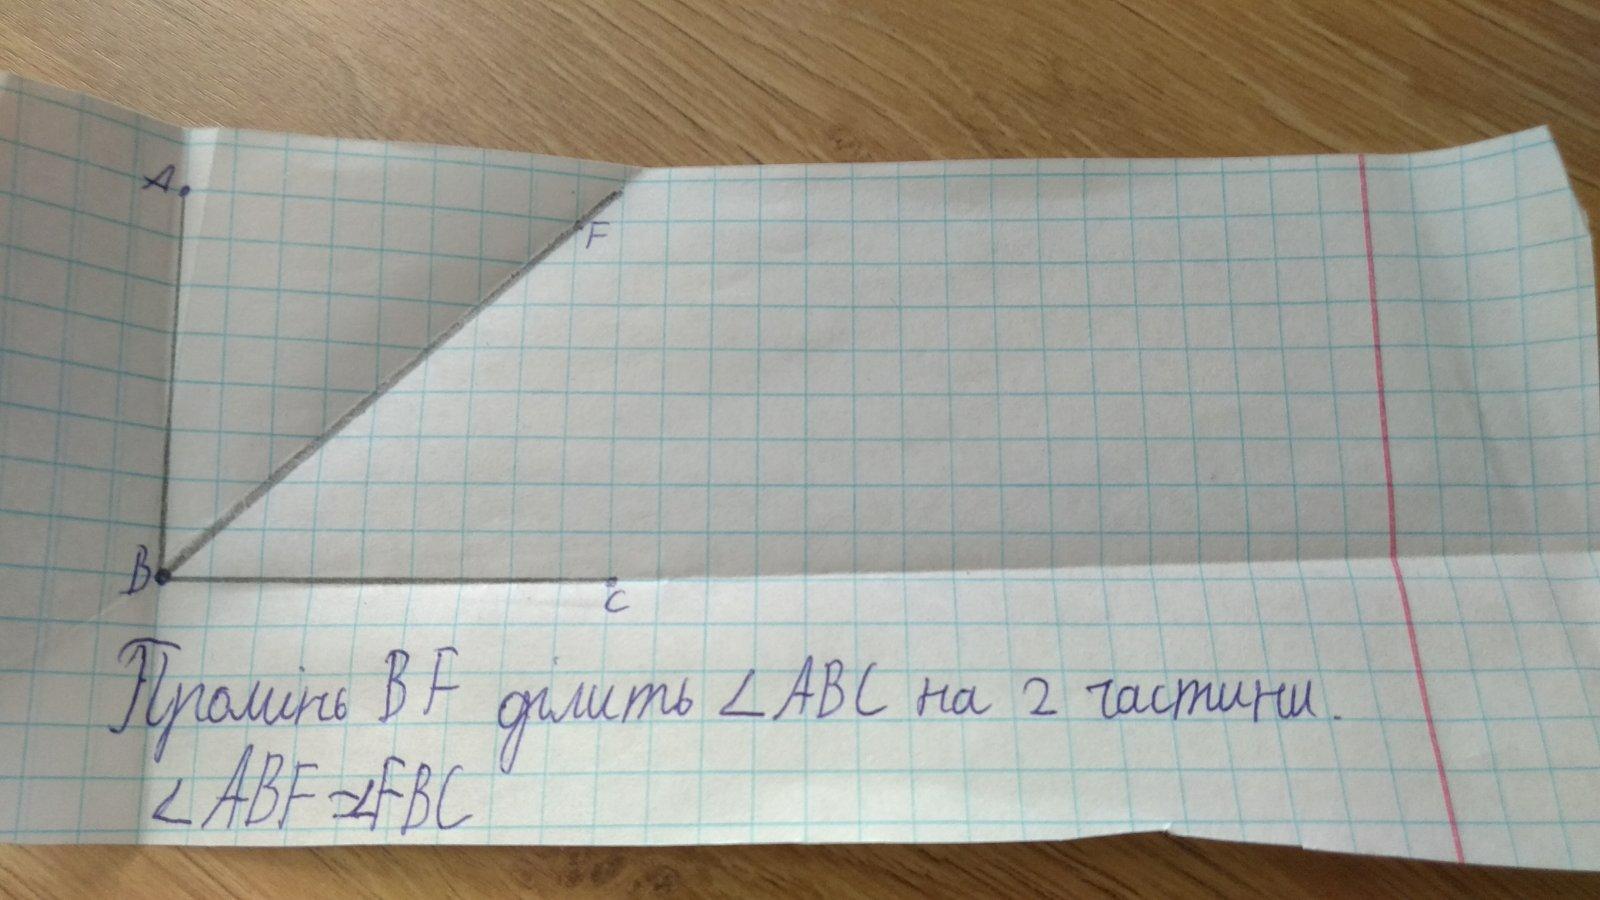 A
F
B
C
Промінь BF ділить ∠ABC на 2 частини.
∠ABF=∠FBC